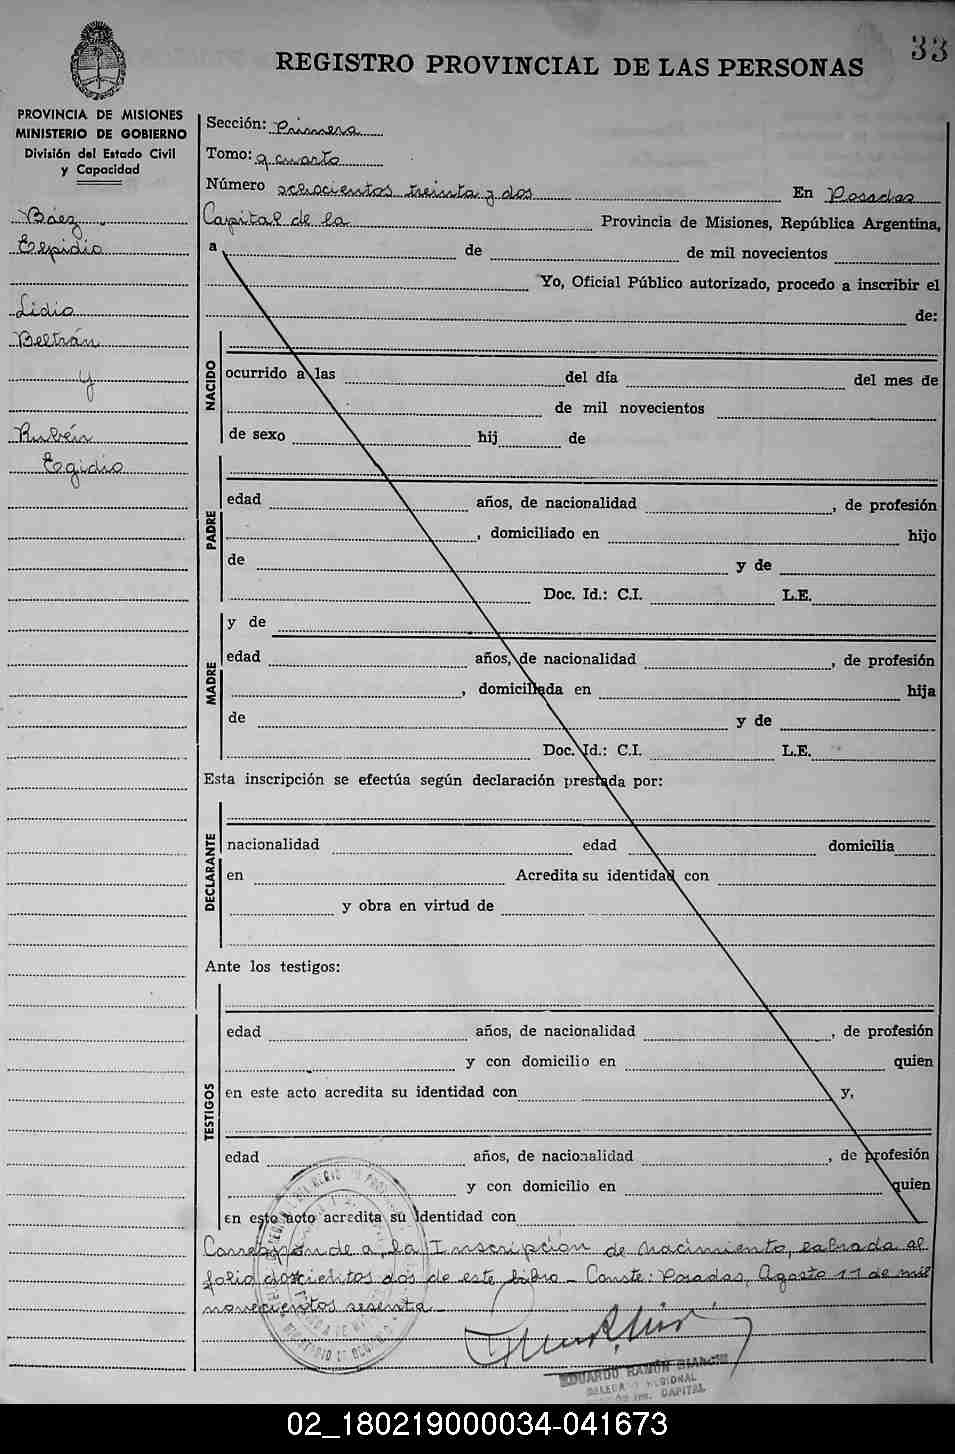 33
REGISTRO PROVINCIAL DE LAS PERSONAS
PROVINCIA DE MISIONES
MINISTERIO DE GOBIERNO
División del Estado Civil
y Capacidad
Báez
Elpidio
Lidio
Beltrán
y
Rubén
Egidio
Sección: Primera
Tomo: 9 cuarto
Número ochocientos treinta y dos En Posadas
Capital de la Provincia de Misiones, República Argentina,
a de de mil novecientos
Yo, Oficial Público autorizado, procedo a inscribir el
de:
NACIDO
ocurrido a las del día del mes de
de mil novecientos
de sexo hij de
PADRE
edad años, de nacionalidad , de profesión
, domiciliado en hijo
de y de
Doc. Id.: C.I. L.E.
y de
MADRE
edad años, de nacionalidad , de profesión
, domiciliada en hija
de y de
Doc. Id.: C.I. L.E.
Esta inscripción se efectúa según declaración prestada por:
DECLARANTE
nacionalidad edad domicilia
en Acredita su identidad con
y obra en virtud de
Ante los testigos:
TESTIGOS
edad años, de nacionalidad , de profesión
y con domicilio en quien
en este acto acredita su identidad con y,
edad años, de nacionalidad , de profesión
y con domicilio en quien
en este acto acredita su identidad con
Corresponde a la Inscripción de nacimiento, labrada al
folio doscientos dos de este libro - Conste: Posadas, Agosto 11 de mil
novecientos sesenta
EDUARDO RAMÓN BIANCHI
DELEGADO REGIONAL
CAPITAL
02_180219000034-041673